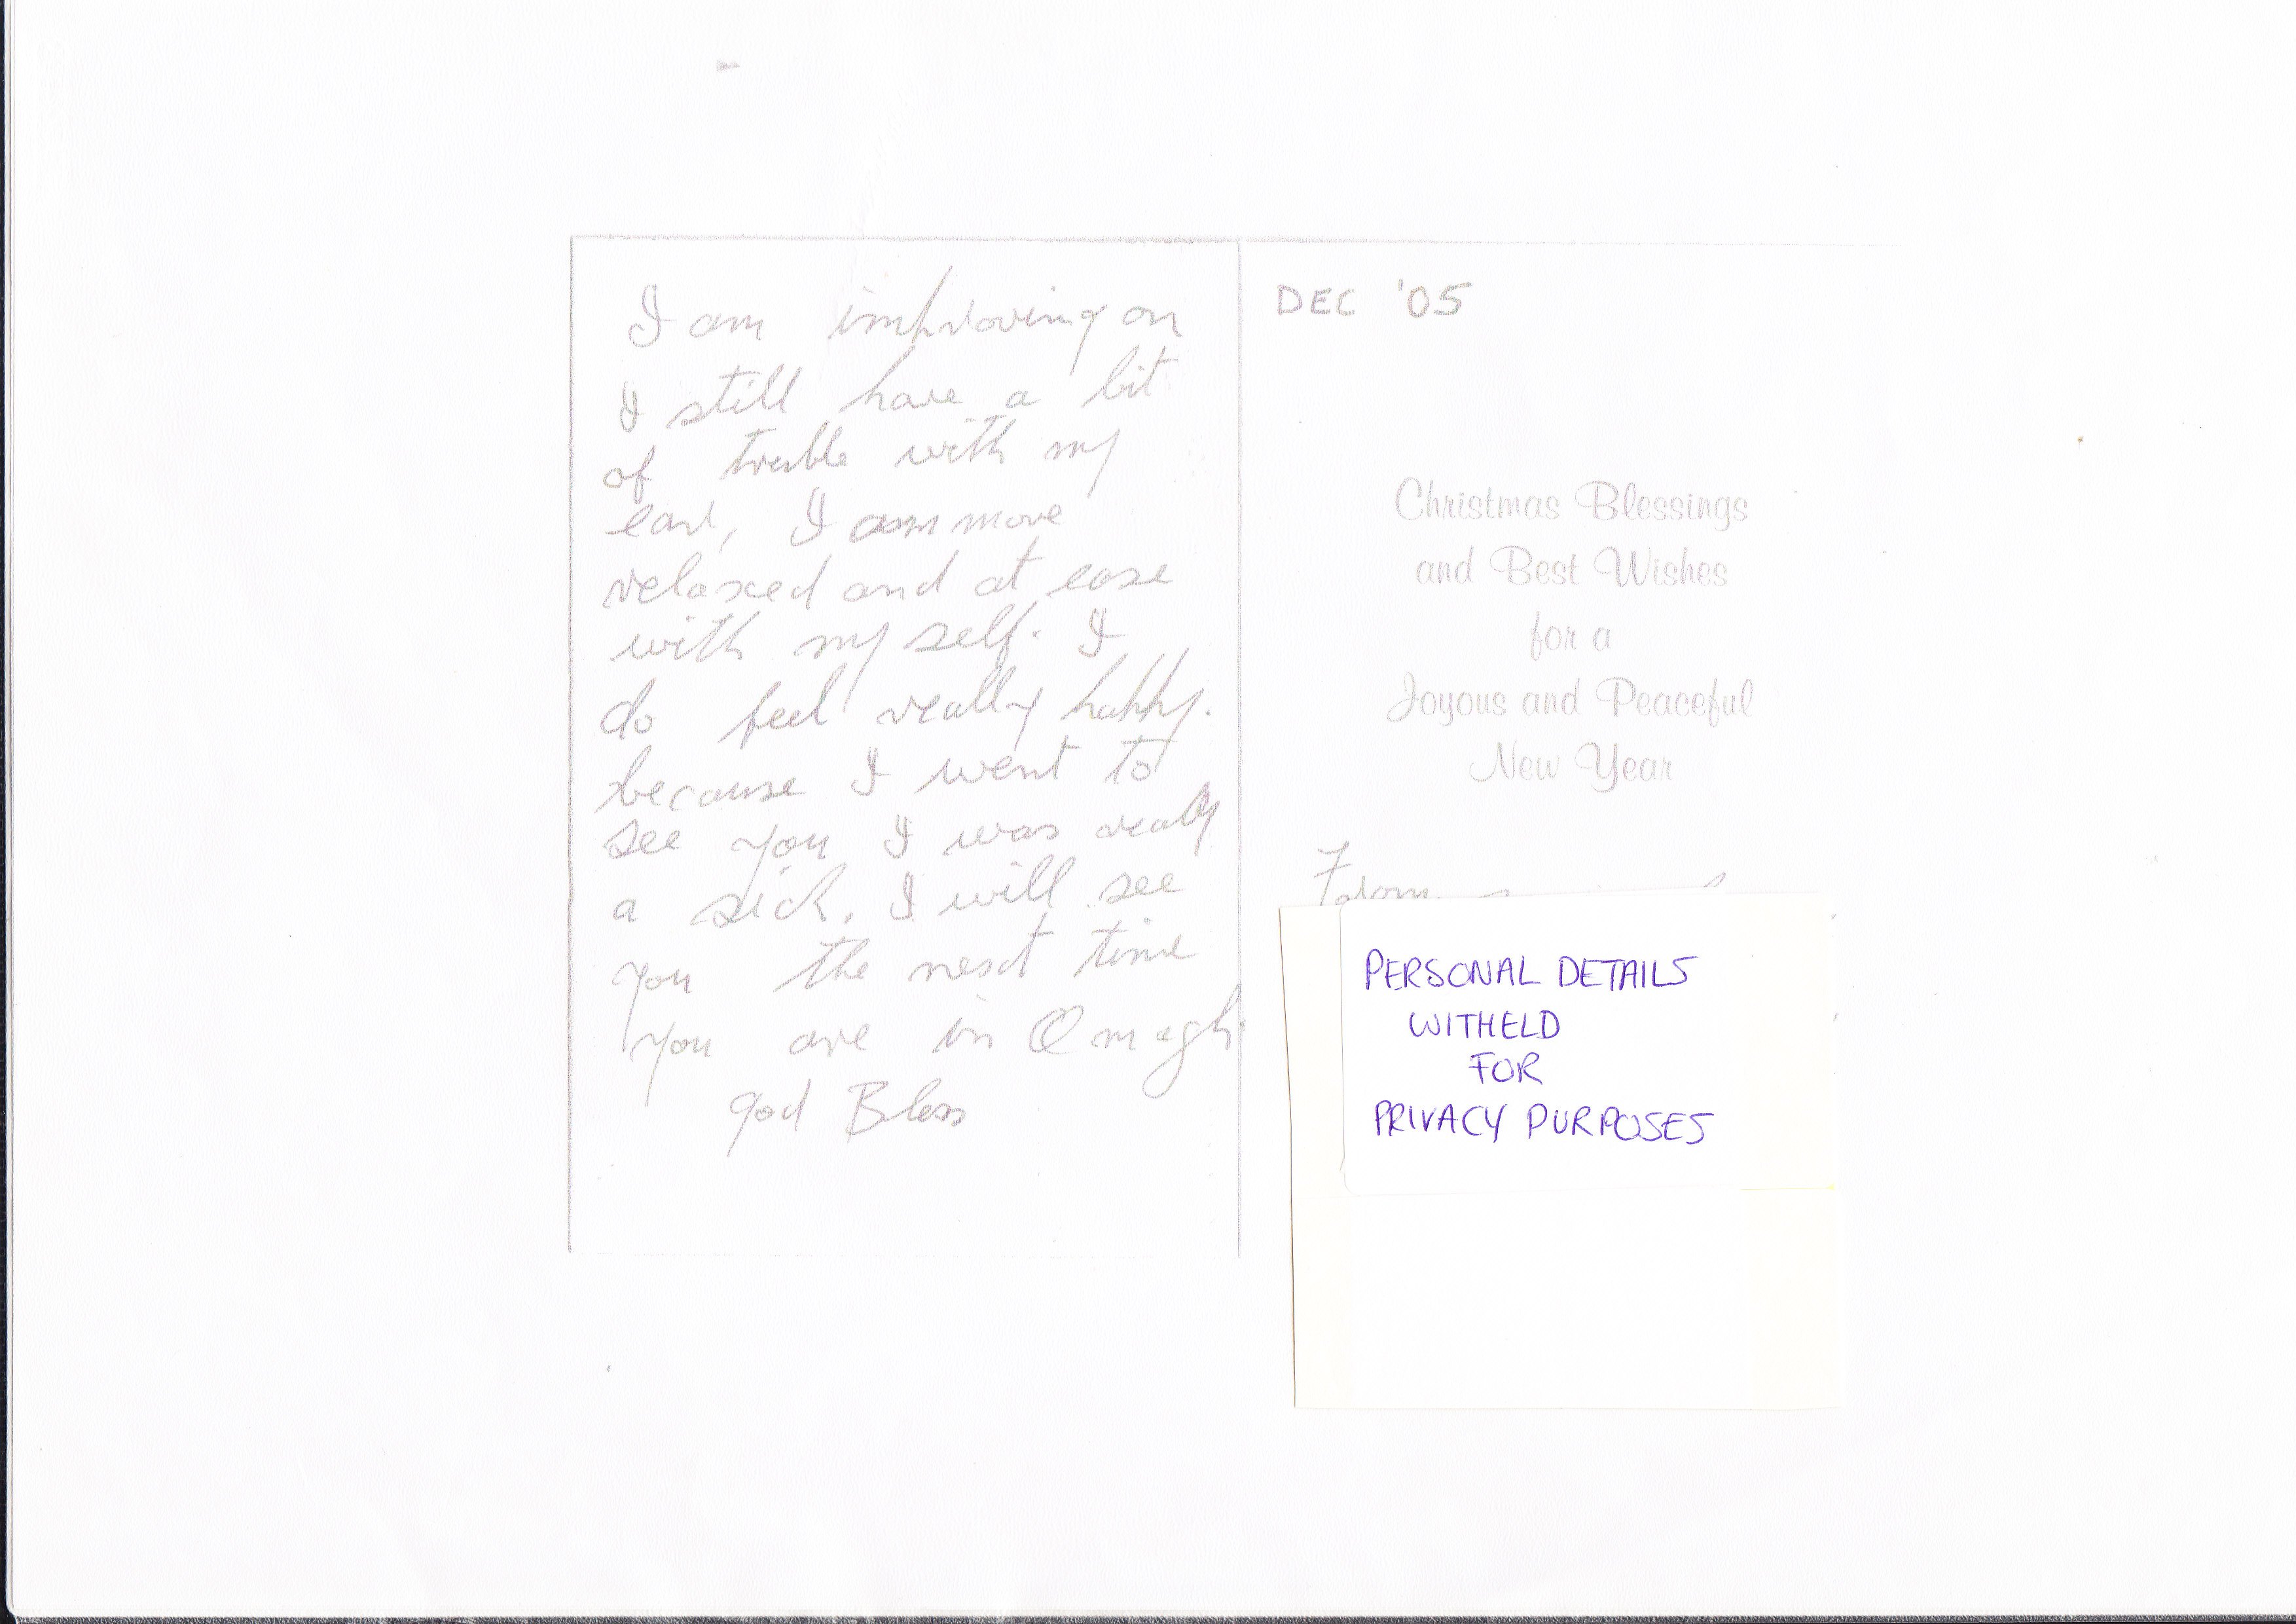 I am improving on
I still have a bit
of truble with my
ear, I am more
relaxed and at ease
with my self. I
do feel really happy.
because I went to
see you I was really
a sick. I will see
you the next time
you are in Omagh
god Bless
DEC '05
Christmas Blessings
and Best Wishes
for a
Joyous and Peaceful
New Year
From
PERSONAL DETAILS
WITHELD
FOR
PRIVACY PURPOSES